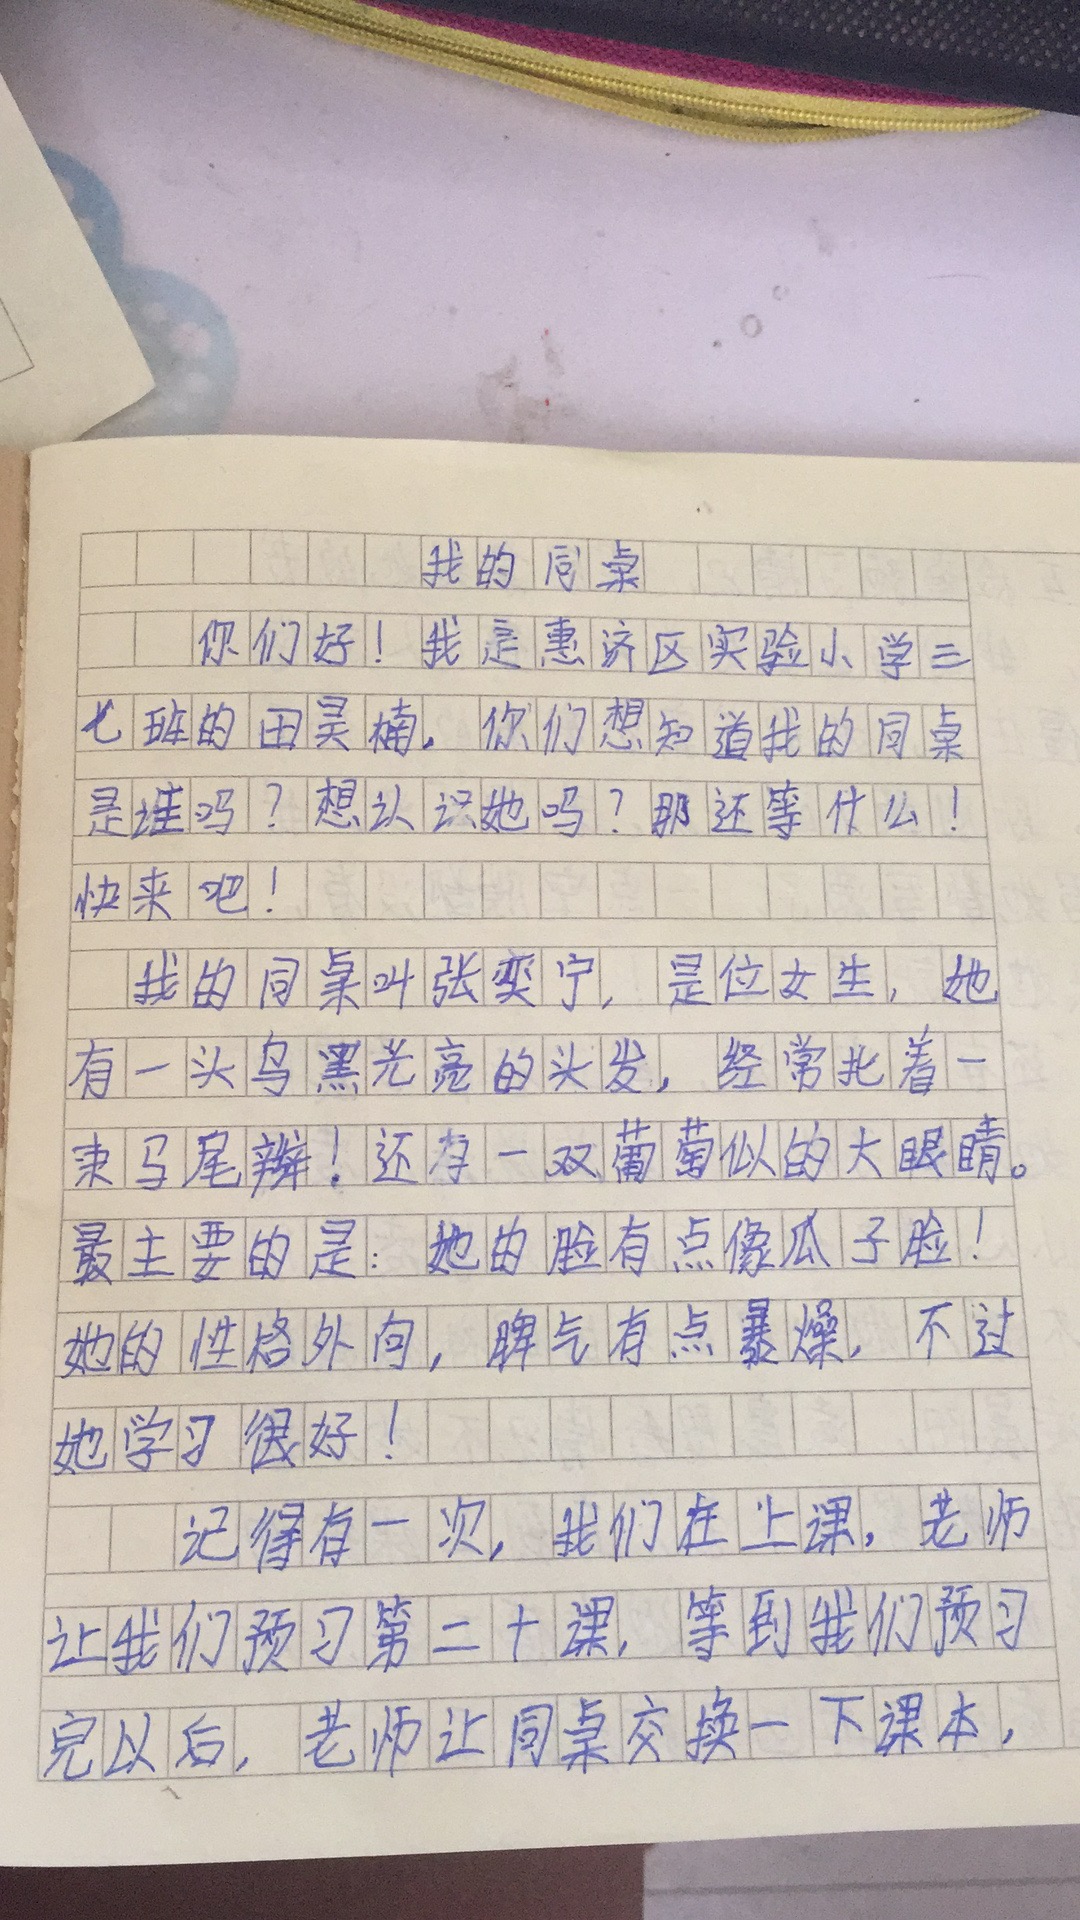 我的同桌
你们好！我是惠济区实验小学三
七班的田昊楠，你们想知道我的同桌
是谁吗？想认识她吗？那还等什么！
快来吧！
我的同桌叫张奕宁，是位女生，她
有一头乌黑光亮的头发，经常扎着一
束马尾辫！还有一双葡萄似的大眼睛。
最主要的是：她的脸有点像瓜子脸！
她的性格外向，脾气有点暴燥，不过
她学习很好！
记得有一次，我们在上课，老师
让我们预习第二十课，等到我们预习
完以后，老师让同桌交换一下课本，